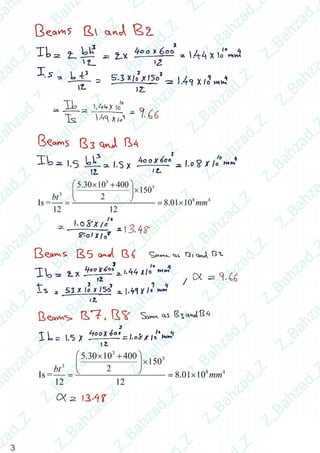 Beams B1 and B2
Ib = 2 bh³/12 = 2x 400x600³/12 = 1.44 x 10¹⁰ mm⁴
Is = bt³/12 = 5.3x10³x150³/12 = 1.49 x 10⁹ mm⁴
= Ib/Is = 1.44x10¹⁰/1.49x10⁹ = 9.66
Beams B3 and B4
Ib = 1.5 bh³/12 = 1.5x 400x600³/12 = 1.08 x 10¹⁰ mm⁴
Is = bt³/12 = ((5.30×10³+400)/2)×150³/12 = 8.01×10⁸ mm⁴
= 1.08x10¹⁰/8.01x10⁸ = 13.48
Beams B5 and B6 Same as B1 and B2
Ib = 2x 400x600³/12 = 1.44x10¹⁰ mm⁴
Is = 5.3x10³x150³/12 = 1.49x10⁹ mm⁴ , α = 9.66
Beams B7, B8 Same as B3 and B4
Ib = 1.5x 400x600³/12 = 1.08x10¹⁰ mm⁴
Is = bt³/12 = ((5.30×10³+400)/2)×150³/12 = 8.01×10⁸ mm⁴
α = 13.48
3
Z_Bahzad_Z